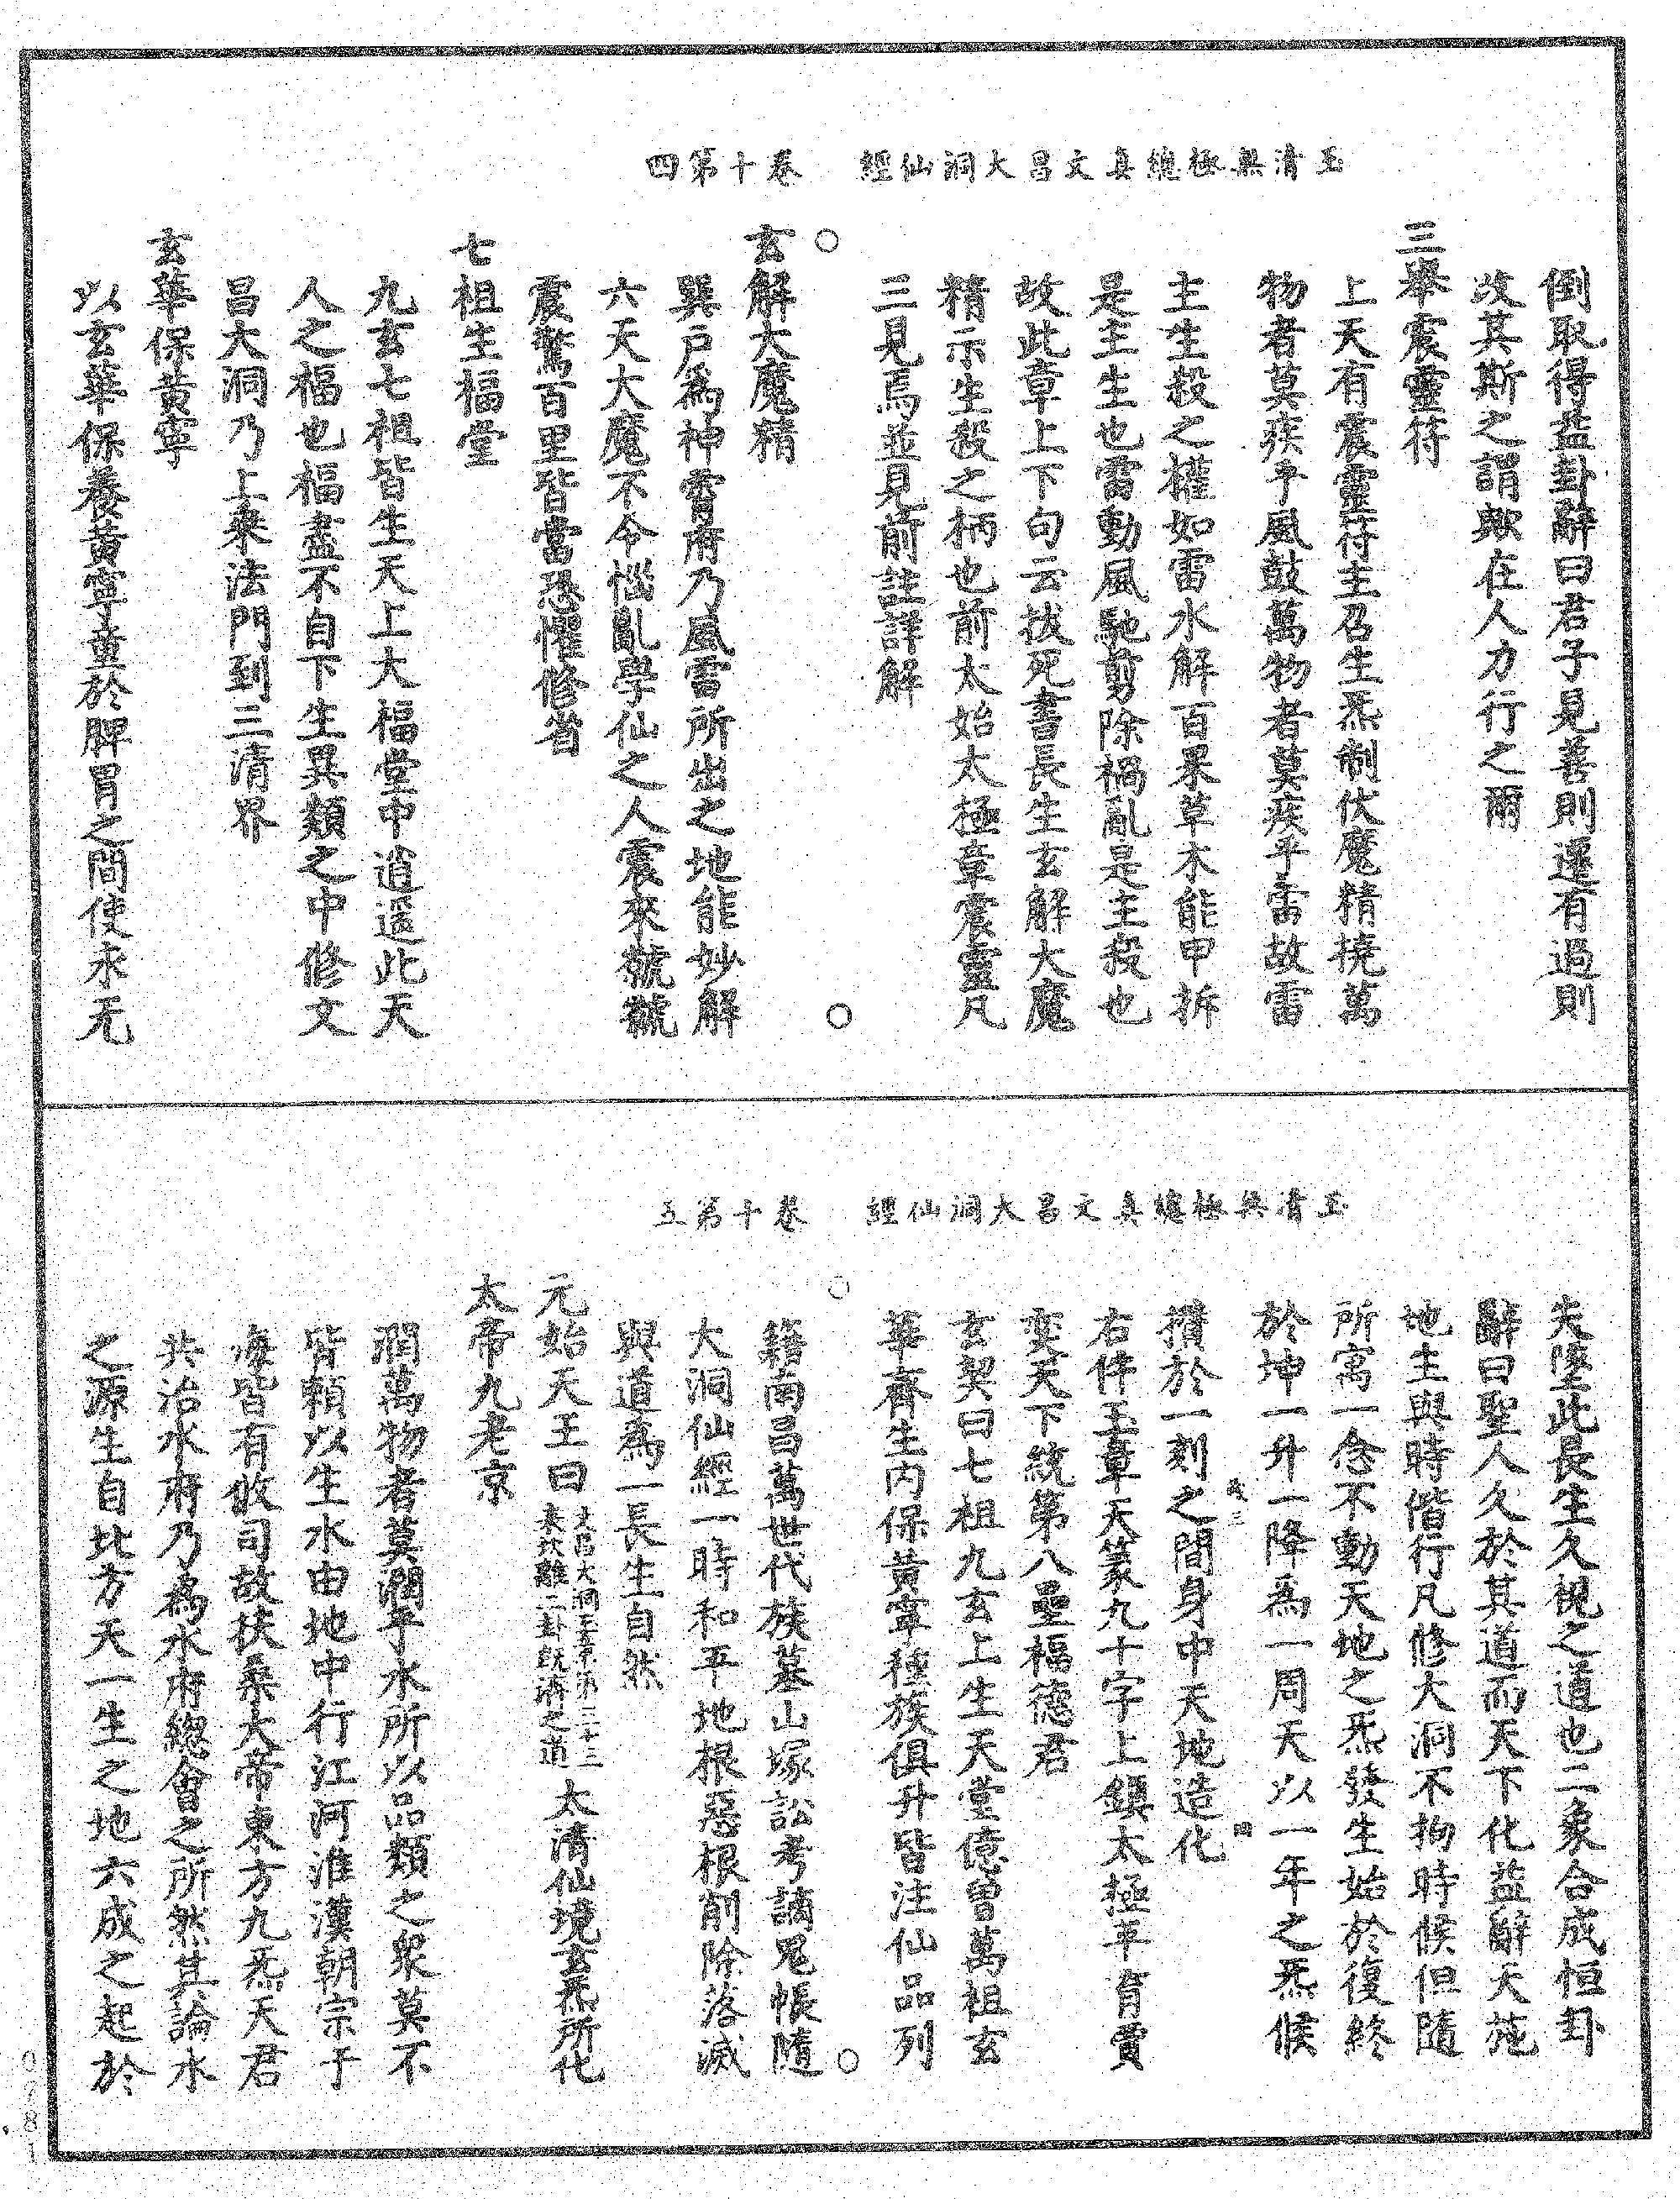 玉清無極總真文昌大洞仙經　卷十第四
倒取得益卦辭曰君子見善則遷有過則
改其斯之謂歟在人力行之爾
三舉震靈符
上天有震靈符主召生炁制伏魔精撓萬
物者莫疾乎風鼓萬物者莫疾乎雷故雷
主生殺之權如雷水解百果草木能甲拆
是主生也雷動風馳剪除禍亂是主殺也
故此章上下句云拔死書長生玄解大魔
精示生殺之柄也前太始太極章震靈凡
三見焉並見前註詳解
○　○
玄解大魔精
巽戶為神霄府乃風雷所出之地能妙解
六天大魔不令惱亂學仙之人震來虩虩
震驚百里皆當恐懼修省
七祖生福堂
九玄七祖皆生天上大福堂中逍遥此天
人之福也福盡不自下生異類之中修文
昌大洞乃上乘法門到三清界
玄華保黃寧
以玄華保養黃寧童於脾胃之間使永无
玉清無極總真文昌大洞仙經　卷十第五
夫墜此長生久視之道也二象合成恒卦
辭曰聖人久於其道而天下化益辭天施
地生與時偕行凡修大洞不拘時候但隨
所寓一念不動天地之炁發生始於復終
於坤一升一降為一周天以一年之炁候
三　四
攢於一刻之間身中天地造化
右件玉章天篆九十字上鎮太極平育賈
奕天下統第八壘福德君
玄契曰七祖九玄上生天堂億曾萬祖玄
華齊生內保黃寧種族俱升皆注仙品列
○　○
籍南昌萬世代族墓山塚訟考謫鬼帳隨
大洞仙經一時和平地根惡根削除落滅
與道為一長生自然
元始天王曰文昌大洞玉章第二十三表坎離二卦既濟之道太清仙境玄炁所化
太帝九老京
潤萬物者莫潤乎水所以品類之衆莫不
皆賴以生水由地中行江河淮漢朝宗于
海皆有攸司故扶桑大帝東方九炁天君
共治水府乃為水府總會之所然其論水
之源生自北方天一生之地六成之起於